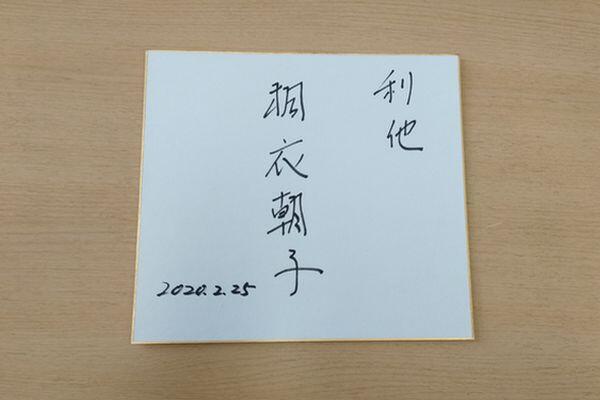 利他
桐衣朝子
2020.2.25